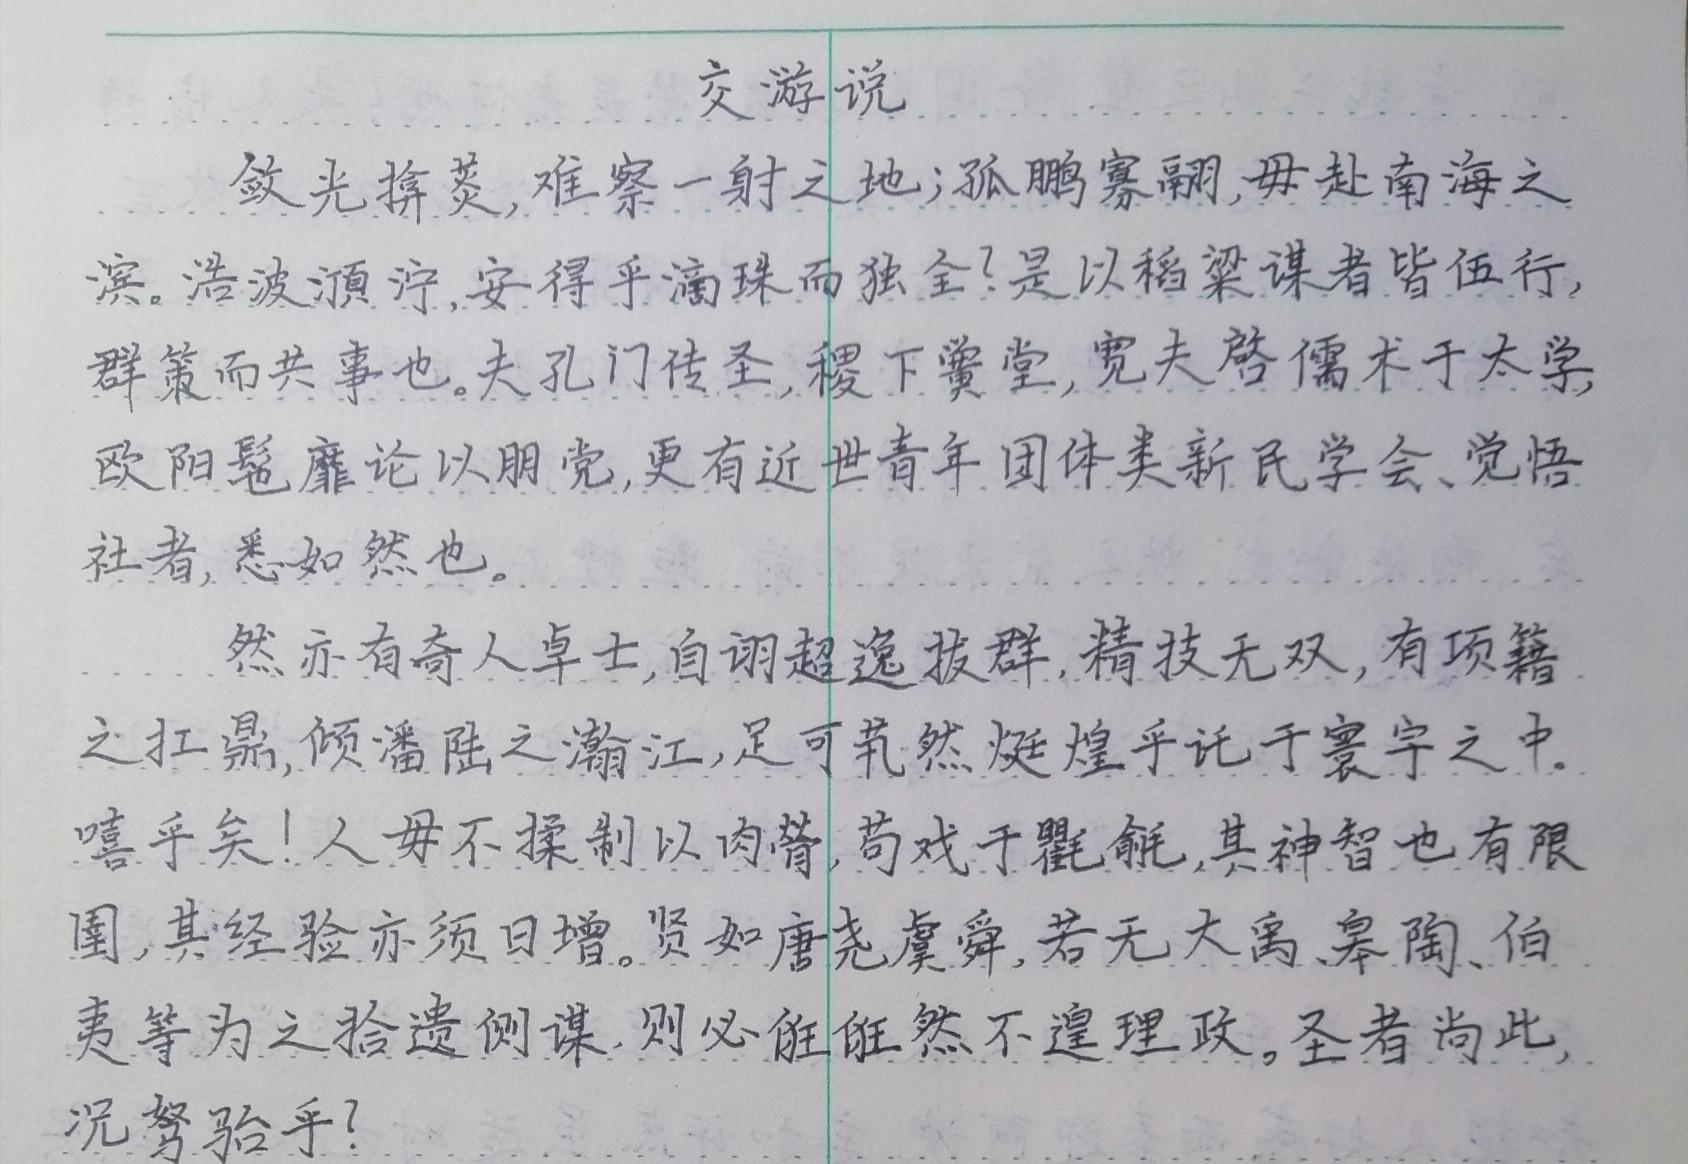 交游说
敛光揜荧,难察一射之地;孤鹏寡翮,毋赴南海之
滨。浩波澒泞,安得乎滴珠而独全?是以稻粱谋者皆伍行,
群策而共事也。夫孔门传圣,稷下黉堂,宽夫啓儒术于太学,
欧阳髢靡论以朋党,更有近世青年团体类新民学会、觉悟
社者,悉如然也。
然亦有奇人卓士,自诩超逸拔群,精技无双,有项籍
之扛鼎,倾潘陆之瀚江,足可茕然烻煌乎讬于寰宇之中。
嘻乎矣!人毋不揉制以肉膋,苟戏于氍毹,其神智也有限
圉,其经验亦须日增。贤如唐尧虞舜,若无大禹、皋陶、伯
夷等为之拾遗侧谋,则必俇俇然不遑理政。圣者尚此,
况驽骀乎?